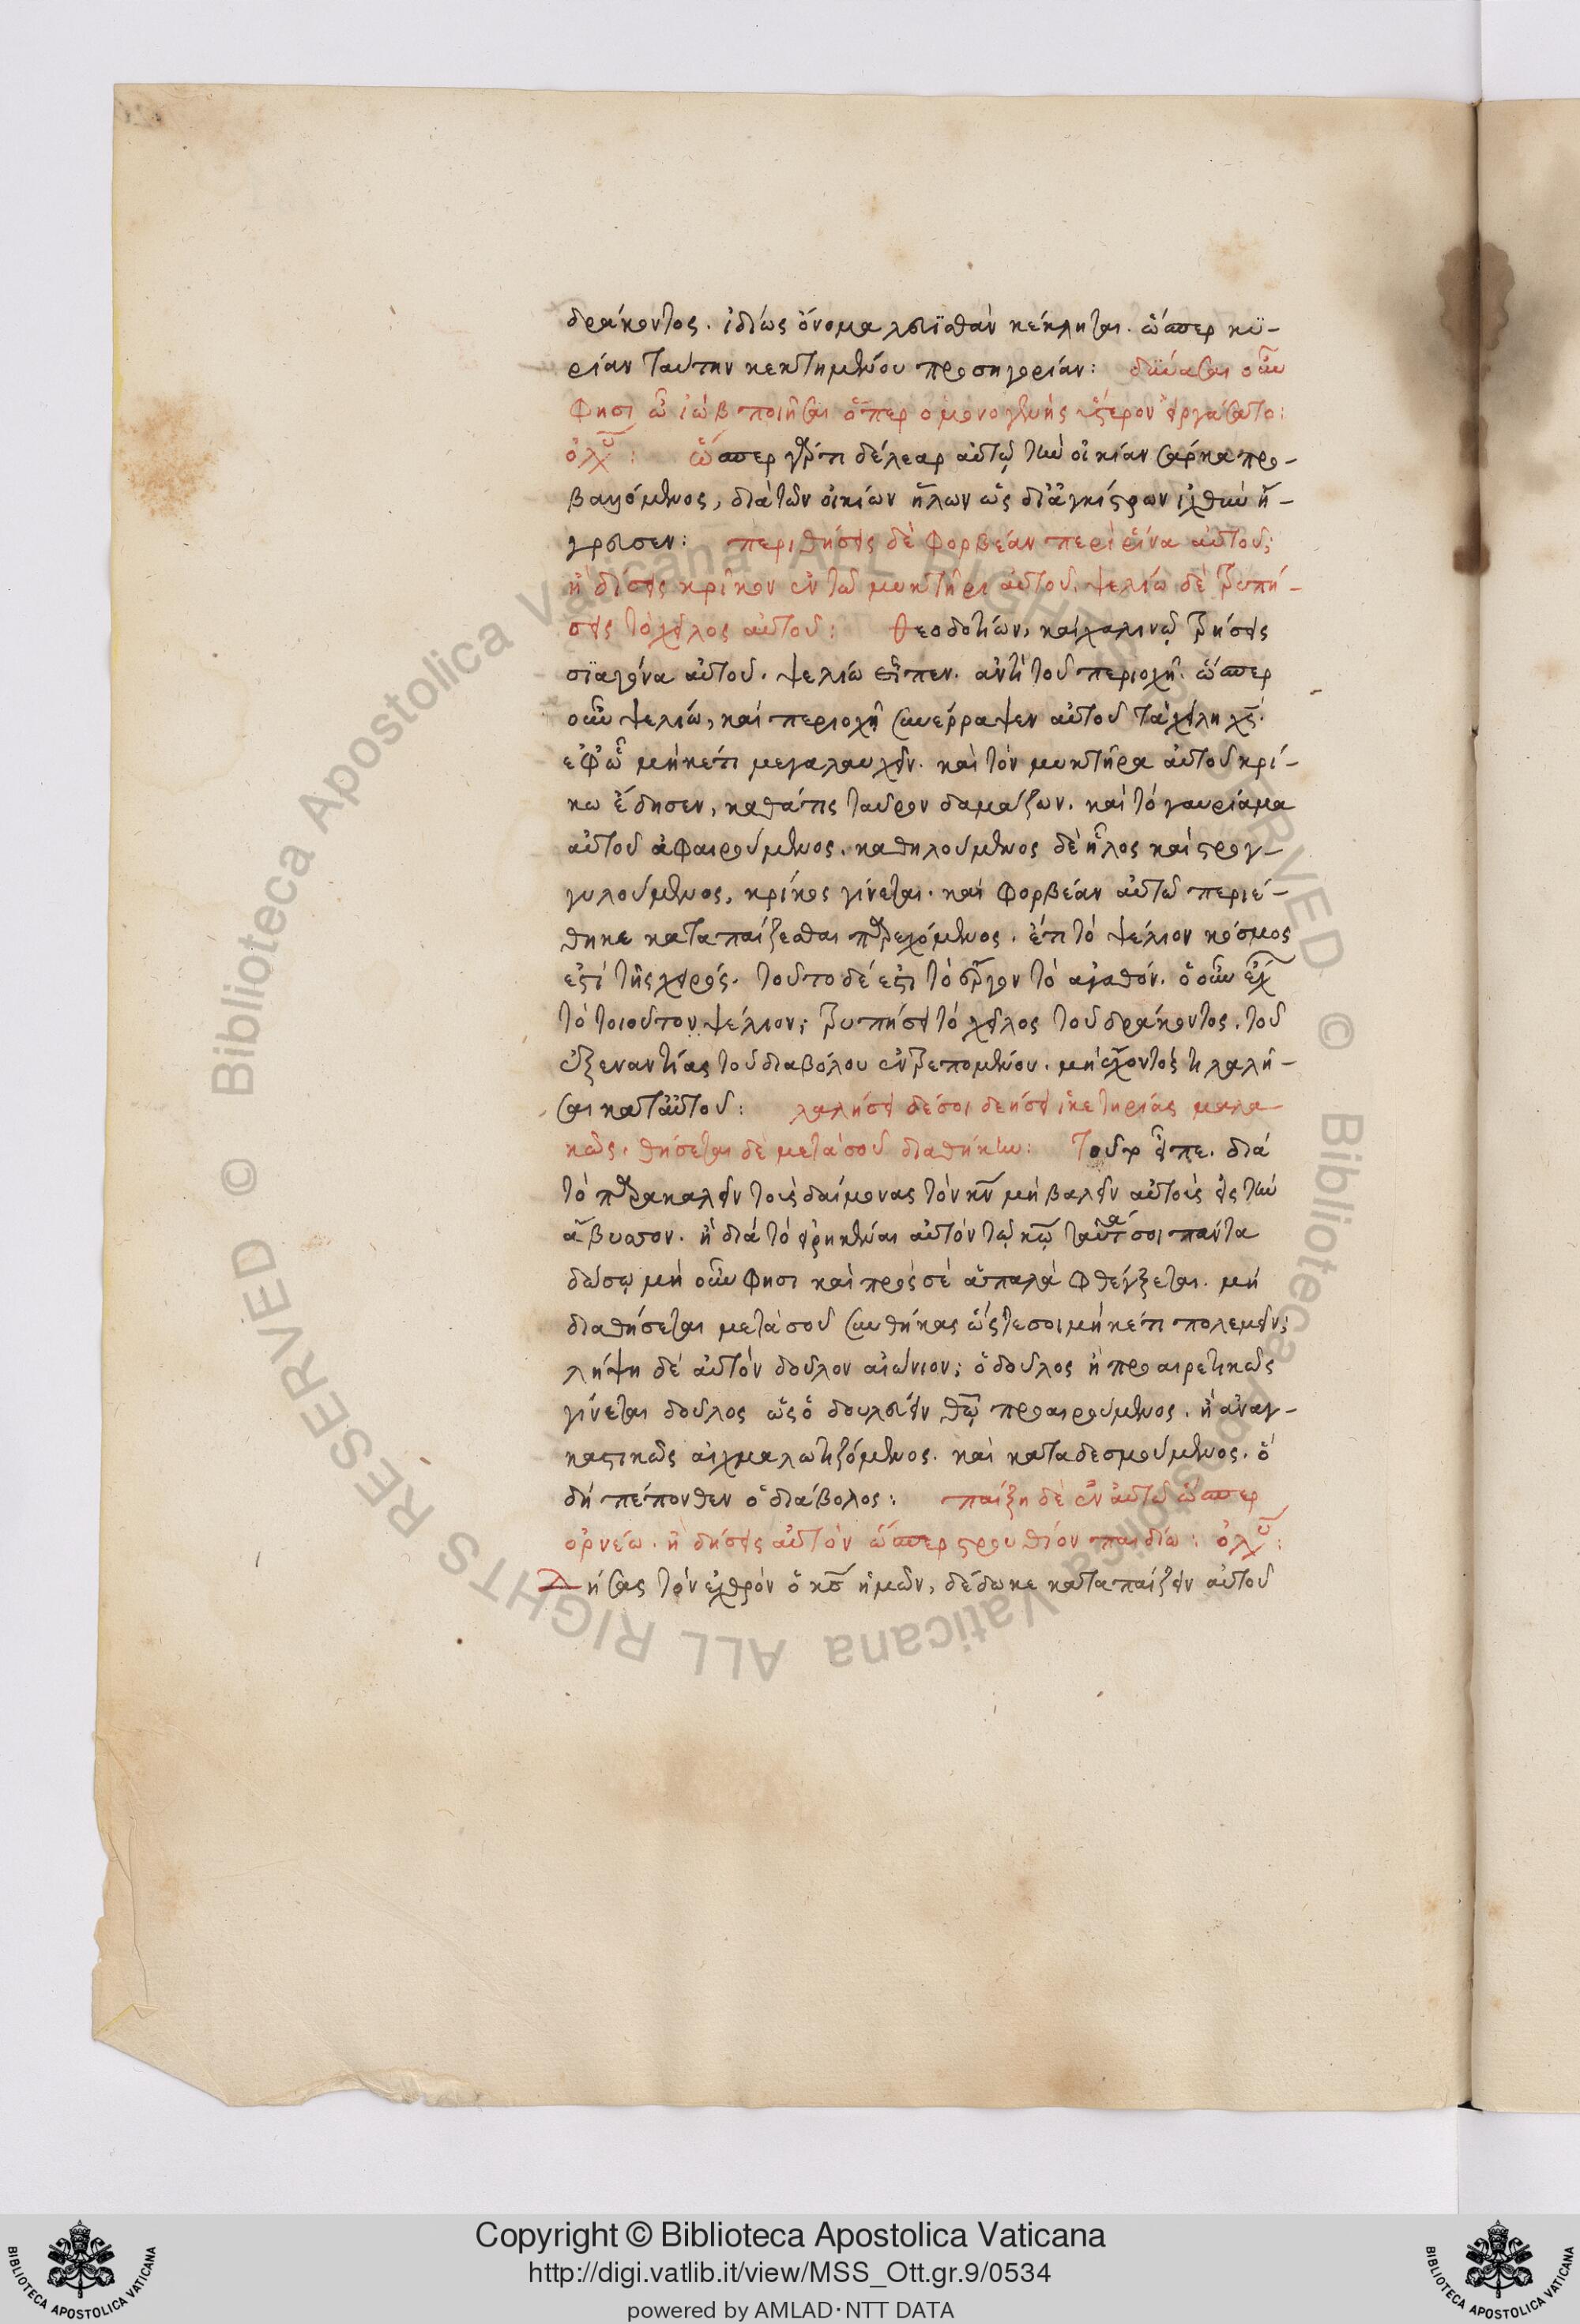 δράκοντος. ἰδίως ὄνομα λευϊαθὰν κέκληται. ὥσπερ κϋ-
ρίαν ταύτην κεκτημένου προσηγορίαν: δύναται οὖν
φησι ὦ ἰὼβ ποιῆσαι ὅπερ ὁ μονογενὴς ὕστερον εἰργάσατο:
ὀλυ: ὥσπερ γάρ τι δέλεαρ αὐτῷ τὴν οἰκίαν σάρκα προ-
βαλλόμενος, διὰ τῶν οἰκίων ἥλων ὡς δι' ἀγκίστρων ἰχθὺν ἤ-
γρευσεν: περιθήσεις δὲ φορβεὰν περὶ ῥίνα αὐτοῦ;
ἢ δήσεις κρίκον ἐν τῶ μυκτῆρι αὐτοῦ. ψελίω δὲ τρυπή-
σεις τὸ χεῖλος αὐτοῦ: θεοδοτίων, καὶ χαλινῷ τρήσεις
σϊαγόνα αὐτοῦ. ψελίω εἶπεν. ἀντὶ τοῦ περιοχῆ. ὥσπερ
οὖν ψελίω, καὶ περιοχῆ συνέρραψεν αὐτοῦ τὰ χείλη χς.
ἐφ' ὧ μηκέτι μεγαλαυχεῖν. καὶ τὸν μυκτῆρα αὐτοῦ κρί-
κω ἔδησεν, καθά τις ταῦρον δαμάζων. καὶ τὸ γαυρίαμα
αὐτοῦ ἀφαιρούμενος. καθηλούμενος δὲ ἧλος καὶ στρογ-
γυλούμενος, κρίκος γίνεται. καὶ φορβεὰν αὐτῶ περιέ-
θηκε καταπαίζεσθαι παρεχόμενος. ἔτι τὸ ψέλιον κόσμος
ἐστὶ τῆς χειρός. τοῦτο δέ ἐστι τὸ ἔργον τὸ ἀγαθόν. ὁ οὖν ἔχ
τὸ τοιοῦτον ψέλιον; τρυπήσει τὸ χεῖλος τοῦ δράκοντος. τοῦ
ἐξεναντίας τοῦ διαβόλου ἐντρεπομένου. μὴ ἔχοντός τι λαλῆ-
σαι κατ' αὐτοῦ: λαλήσει δέ σοι δεήσει ἱκετηρίας μαλα
κῶς. θήσεται δὲ μετὰ σοῦ διαθήκην: τοῦτο εἶπε. διὰ
τὸ παρακαλεῖν τοὺς δαίμονας τὸν κν μὴ βαλεῖν αὐτοὺς εἰς τὴν
ἄβυσσον. ἢ διὰ τὸ εἰρηκέναι αὐτὸν τῷ κω ταῦτά σοι πάντα
δώσω μὴ οὖν φησι καὶ πρὸς σὲ ἁπαλὰ φθέγξεται. μὴ
διαθήσεται μετὰ σοῦ συνθήκας ὥστέ σοι μηκέτι πολεμεῖν;
λήψη δὲ αὐτὸν δοῦλον αἰώνιον; ὁ δοῦλος ἢ προαιρετικῶς
γίνεται δοῦλος ὡς ὁ δουλεύειν θω προαιρούμενος. ἢ ἀναγ-
καστικῶς αἰχμαλωτιζόμενος. καὶ καταδεσμούμενος. ὃ
δὴ πέπονθεν ὁ διάβολος: παίξη δὲ ἐν αὐτῶ ὥσπερ
ὀρνέω. ἢ δήσεις αὐτὸν ὥσπερ στρουθίον παιδίω: ὀλυ:
Δήσας τὸν ἐχθρὸν ὁ κς ἡμῶν, δέδωκε καταπαίζειν αὐτοῦ
Copyright © Biblioteca Apostolica Vaticana
http://digi.vatlib.it/view/MSS_Ott.gr.9/0534
powered by AMLAD·NTT DATA